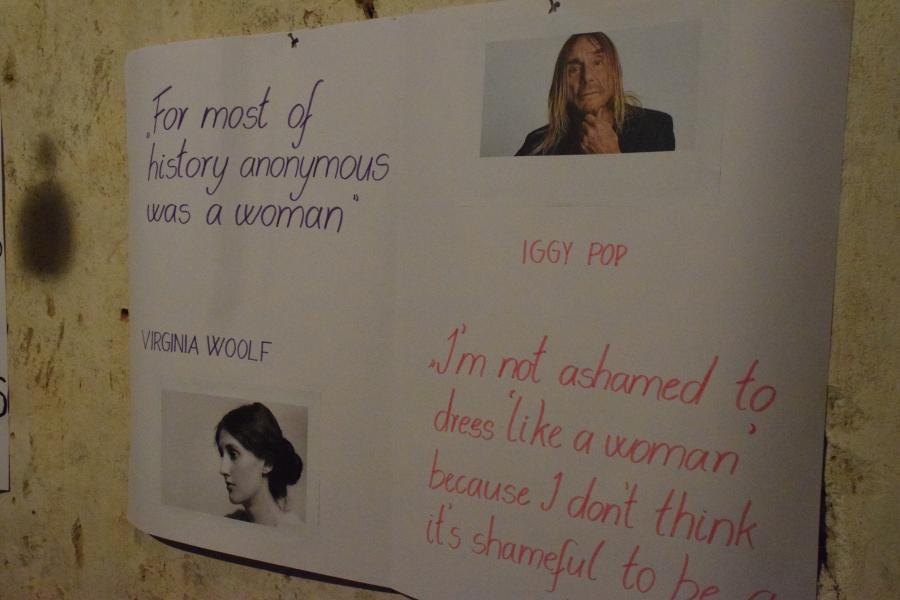 „For most of
history anonymous
was a woman”
VIRGINIA WOOLF
IGGY POP
„I'm not ashamed to
dress 'like a woman'
because I don't think
it's shameful to be a